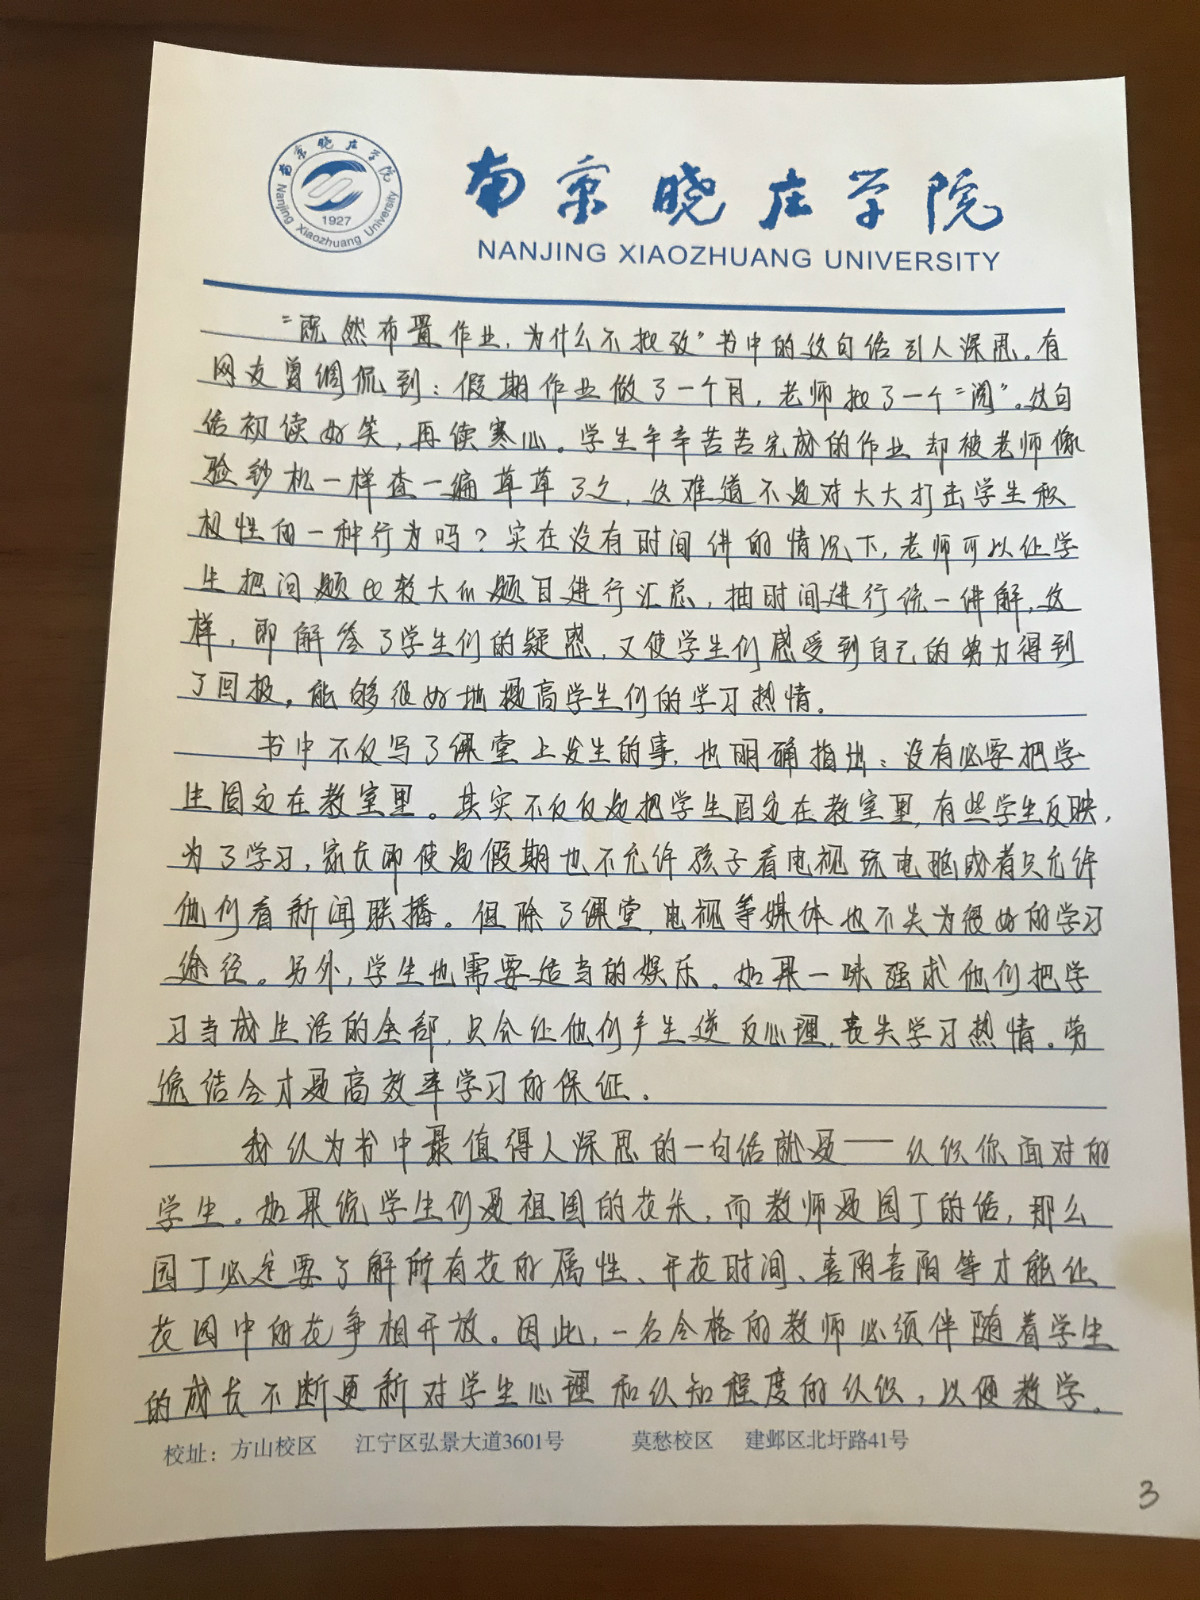 南京晓庄学院
Nanjing Xiaozhuang University
1927
南京晓庄学院
NANJING XIAOZHUANG UNIVERSITY
“既然布置作业，为什么不批改”书中的这句话引人深思。有
网友曾调侃到：假期作业做了一个月，老师批了一个“阅”。这句
话初读好笑，再读寒心。学生辛辛苦苦完成的作业却被老师像
验钞机一样查一遍草草了之，这难道不是对大大打击学生积
极性的一种行为吗？实在没有时间讲的情况下，老师可以让学
生把问题比较大的题目进行汇总，抽时间进行统一讲解，这
样，即解答了学生们的疑惑，又使学生们感受到自己的努力得到
了回报。能够很好地提高学生们的学习热情。
书中不仅写了课堂上发生的事，也明确指出：没有必要把学
生固定在教室里。其实不仅仅是把学生固定在教室里，有些学生反映，
为了学习，家长即使是假期也不允许孩子看电视玩电脑或者只允许
他们看新闻联播。但除了课堂，电视等媒体也不失为很好的学习
途径。另外，学生也需要适当的娱乐。如果一味强求他们把学
习当成生活的全部，只会让他们产生逆反心理，丧失学习热情。劳
逸结合才是高效率学习的保证。
我认为书中最值得人深思的一句话就是——认识你面对的
学生。如果说学生们是祖国的花朵，而教师是园丁的话，那么
园丁必定要了解所有花的属性、开花时间、喜阴喜阳等才能让
花园中的花争相开放。因此，一名合格的教师必须伴随着学生
的成长不断更新对学生心理和认知程度的认识，以便教学。
校址：方山校区 江宁区弘景大道3601号 莫愁校区 建邺区北圩路41号
3